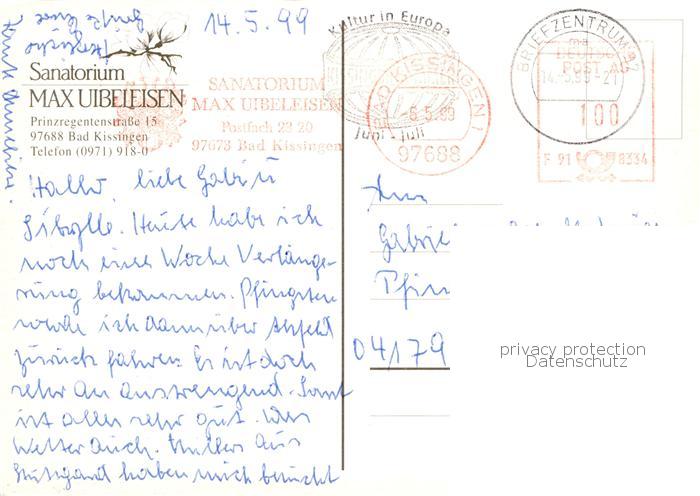 14.5.99
Herzliche
Grüße
Sanatorium
MAX UIBELEISEN
Prinzregentenstraße 15
97688 Bad Kissingen
Telefon (0971) 918-0
SANATORIUM
MAX UIBELEISEN
Postfach 22 20
97673 Bad Kissingen
Kultur in Europa
Juni - Juli
BAD KISSINGEN 1
-6.5.99
97688
BRIEFZENTRUM 97
14.-5.99-21
DEUTSCHE
POST AG
100
F 91 8334
Hallo, liebe Gabi u
Sibylle. Heute habe ich
noch eine Woche Verlänge-
rung bekommen. Pfingsten
werde ich dann über
zurück fahren. Es ist doch
sehr anstrengend. Sonst
ist alles sehr gut. Das
Wetter auch. Müllers aus
Stuttgart haben mich besucht
An
04179
privacy protection
Datenschutz